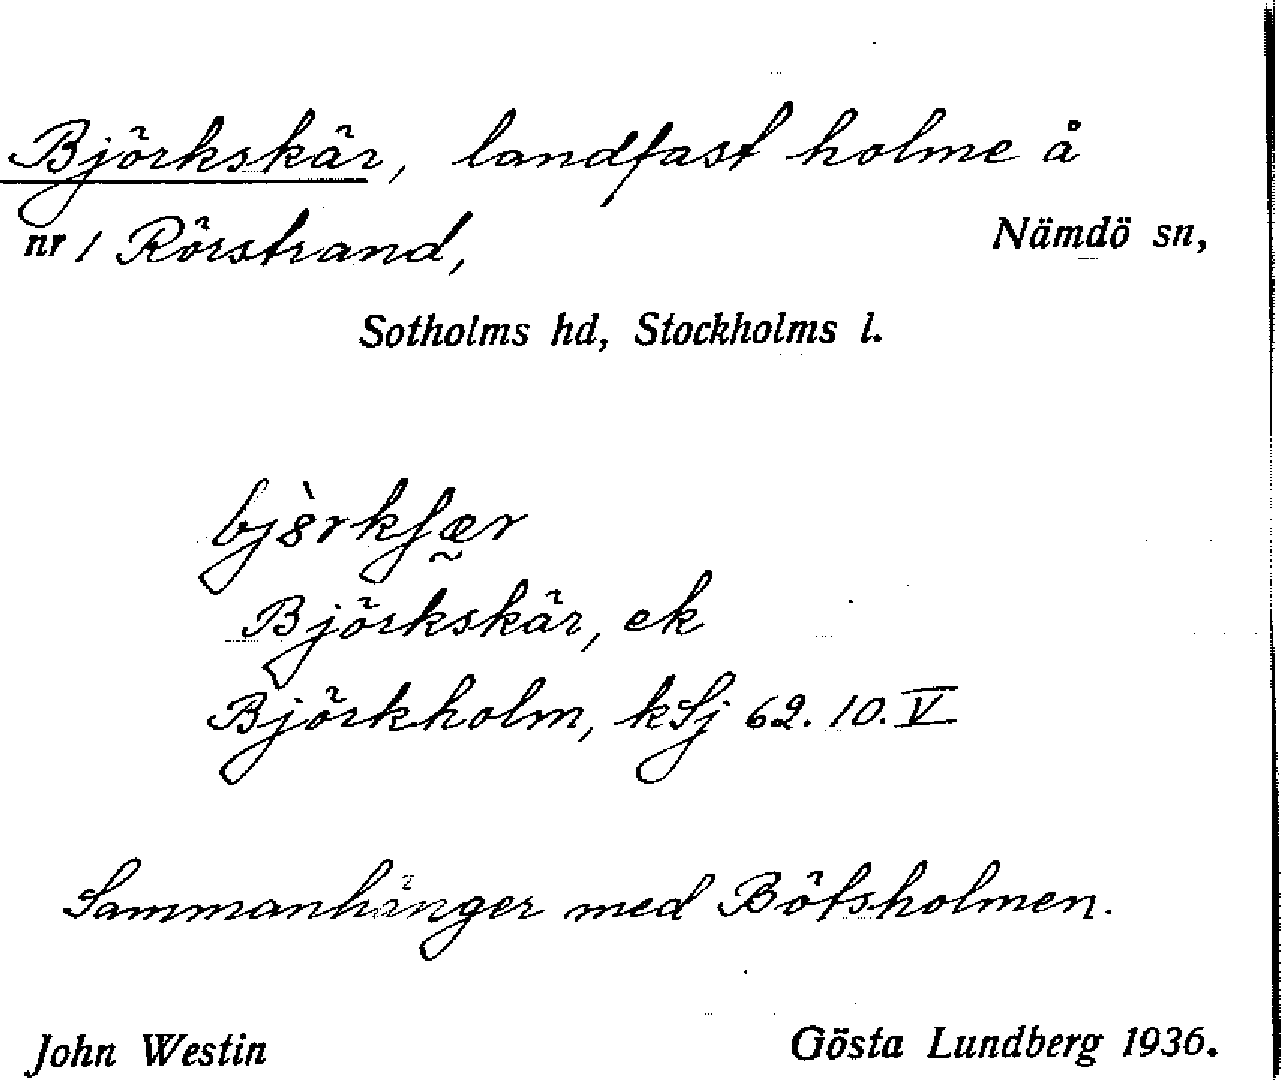 Björkskär, landfast holme å
nr 1 Rörstrand, Nämdö sn,
Sotholms hd, Stockholms l.
Björkskär, ek
Björkholm, kSj 62. 10. V
Sammanhänger med Bötsholmen.
John Westin Gösta Lundberg 1936.